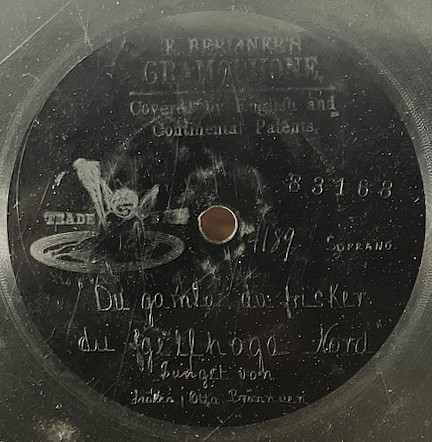 E. BERLINER'S
GRAMOPHONE.
Covered by English and
Continental Patents.
83168
TRADE
189 SOPRANO.
Du gamla du frisker
du fjellhoga Nord"
Sunget von
Otta Brönnum